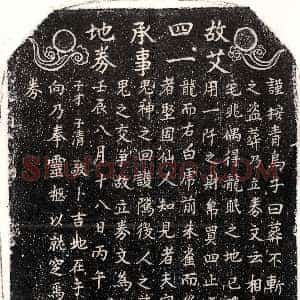 故艾
四一
承事
地券
謹按青烏子曰葬不斬
之盗葬乃立券文云相
宅兆偶得龍眠之地已
用一阡之財帛買四止
龍而右白虎前朱雀而
者堅固仙人知見者夫
神之回護隲後人之
之交爭故立券文為
壬辰八月十八日丙午
子才子清卜吉地在
向乃奉靈柩以就窆焉
券